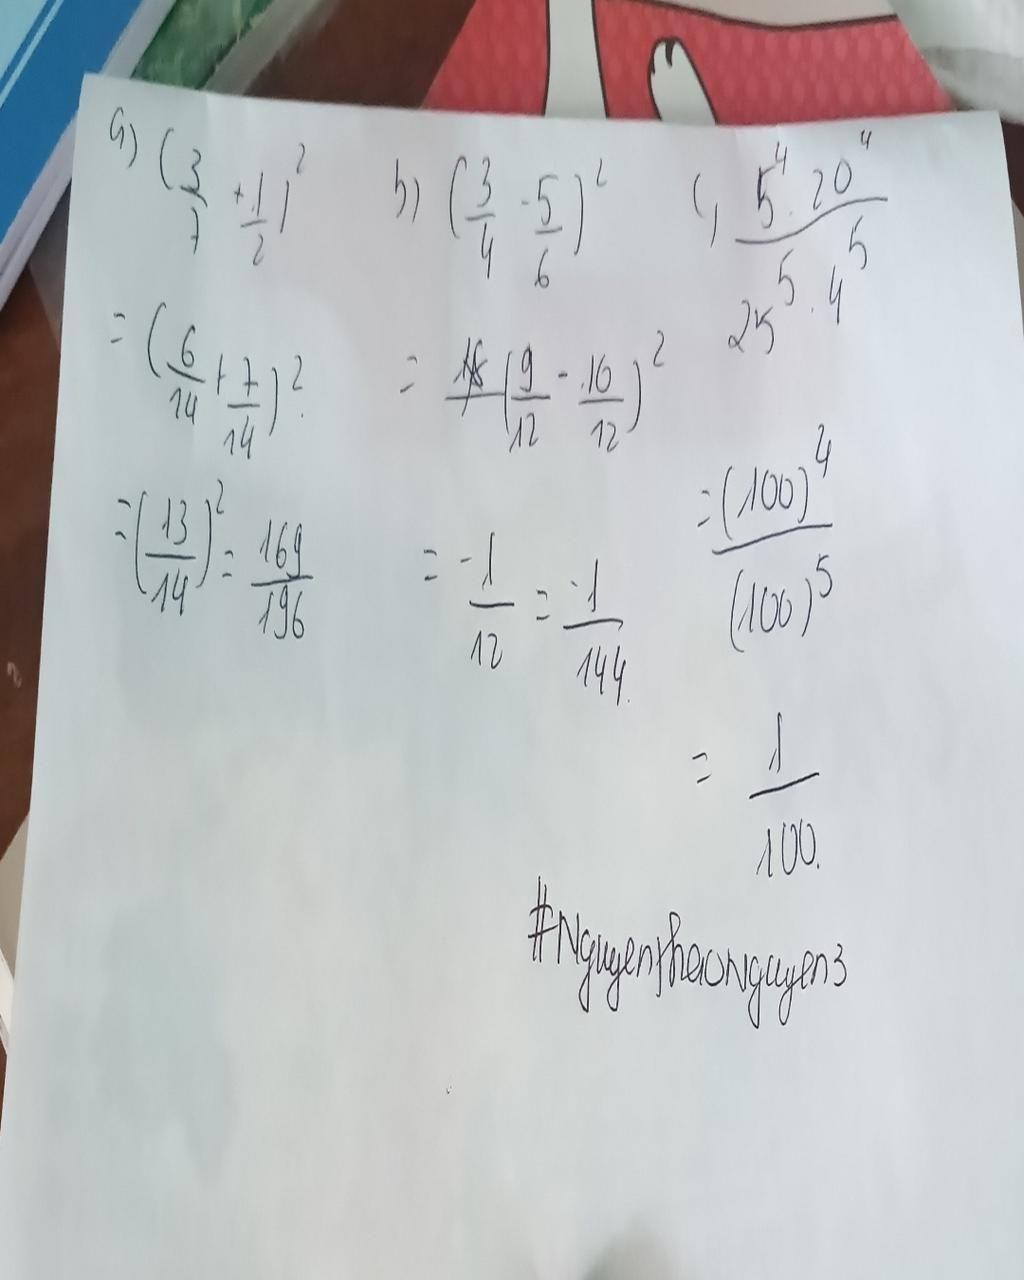 a) (3/7 + 1/2)²
= (6/14 + 7/14)².
= (13/14)² = 169/196
b) (3/4 - 5/6)²
= (9/12 - 10/12)²
= -1/12 = -1/144.
c, 5⁴.20⁴/25⁵.4⁵
= (100)⁴/(100)⁵
= 1/100.
#NguyenthaoNguyen3